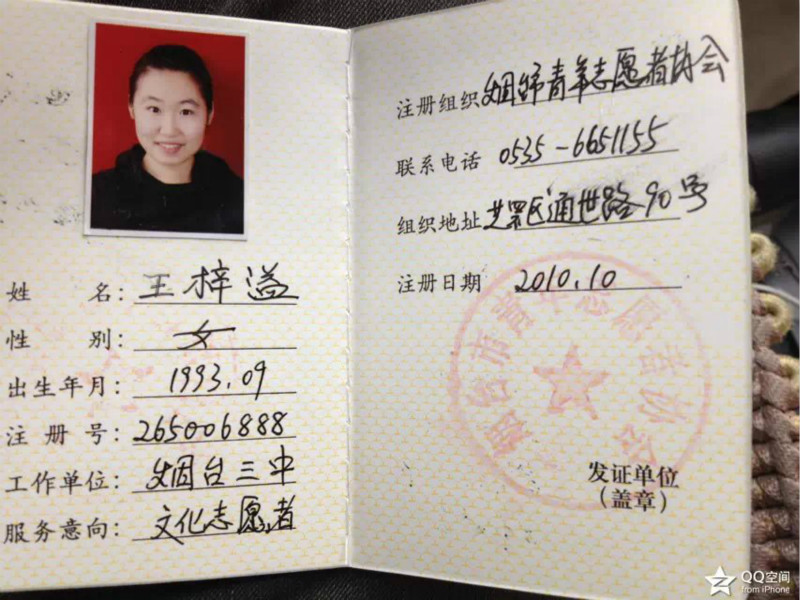 姓 名：王梓溢
性 别：女
出生年月：1993.09
注 册 号：265006888
工作单位：烟台三中
服务意向：文化志愿者
注册组织 烟台市青年志愿者协会
联系电话 0535-6651155
组织地址 芝罘区通世路90号
注册日期 2010.10
烟台市青年志愿者协会
发证单位
（盖章）
QQ空间
from iPhone